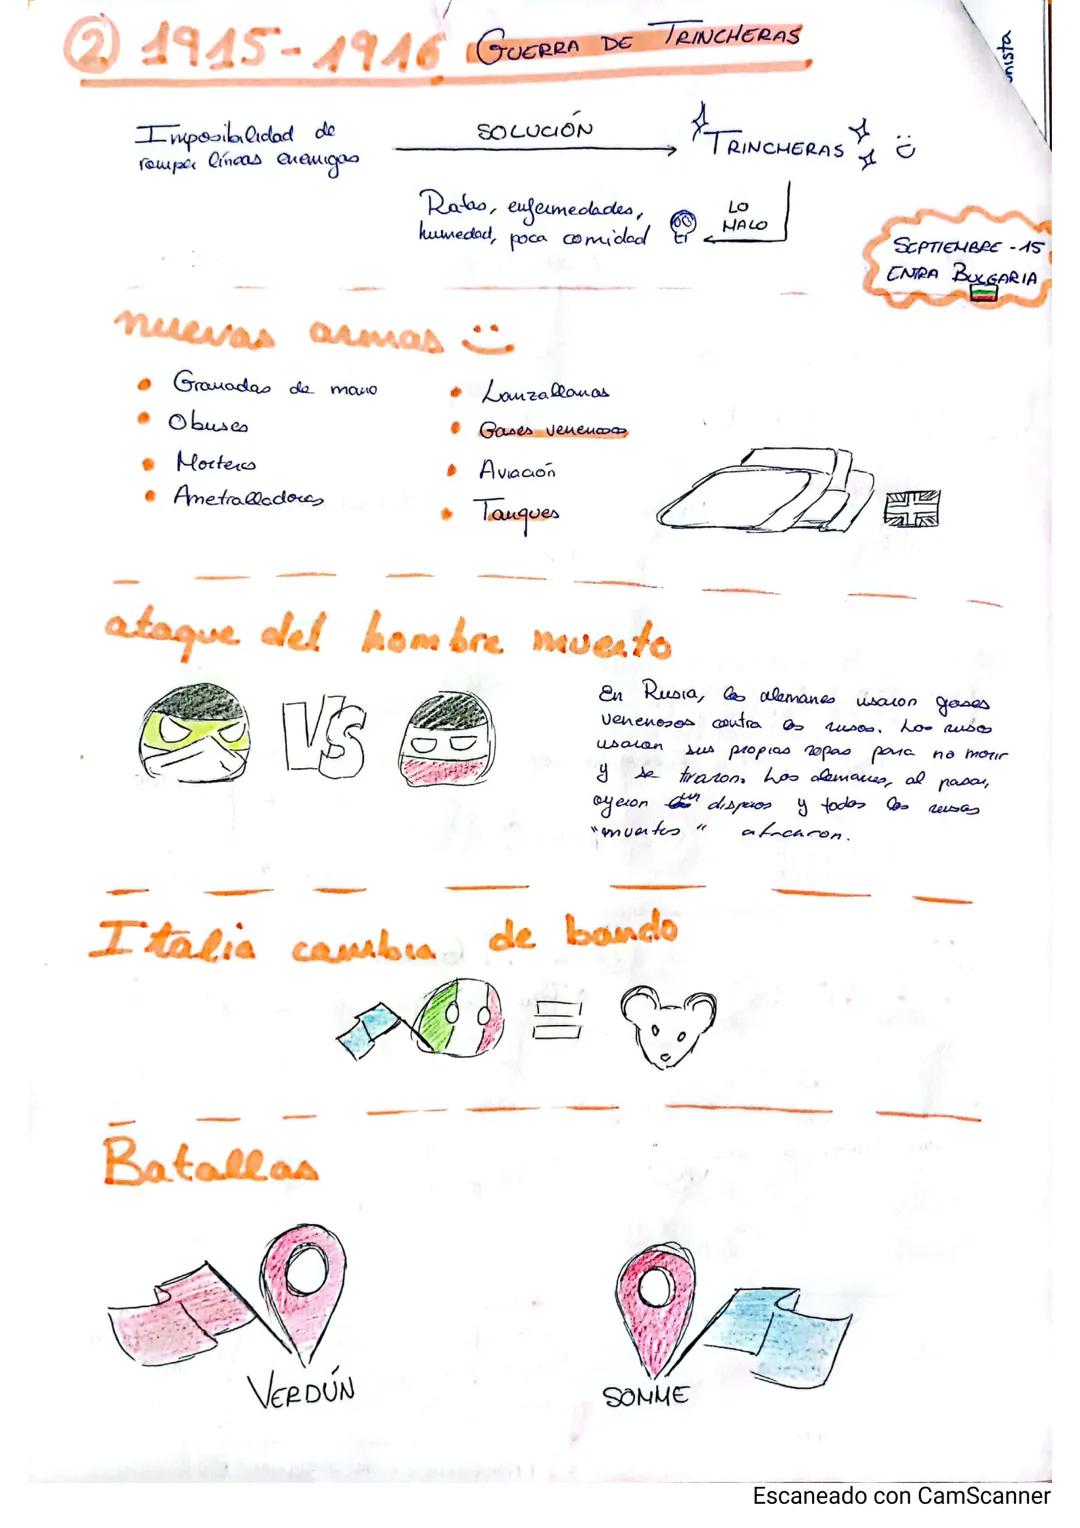 ② 1915-1916 GUERRA DE TRINCHERAS
nista
Imposibilidad de
romper líneas enemigas
SOLUCIÓN
TRINCHERAS :)
Ratas, enfermedades,
humedad, poca comida
LO
MALO
SEPTIEMBRE - 15
ENTRA BULGARIA
nuevas armas
Granadas de mano
Obuses
Morteros
Ametralladoras
Lanzallamas
Gases venenosos
Aviación
Tanques
ataque del hombre muerto
VS
En Rusia, los alemanes usaron gases
venenosos contra los rusos. Los rusos
usaron sus propias ropas para no morir
y se tiraron. Los alemanes, al pasar,
oyeron un disparos y todos los rusos
"muertos" atacaron.
Italia cambia de bando
Batallas
VERDÚN
SOMME
Escaneado con CamScanner